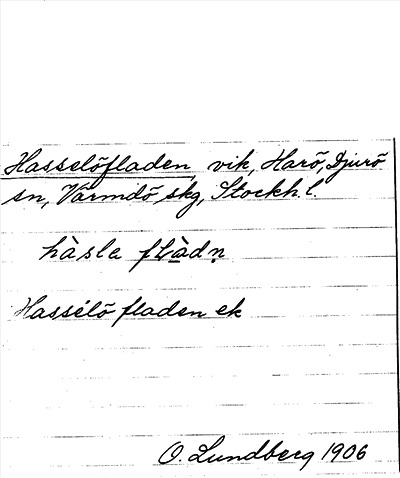 Hasselöfladen, vik, Harö, Djurö
sn, Värmdö skg, Stockh. l.
hàsla flàdn̥
Hasselö fladen ek
O. Lundberg 1906